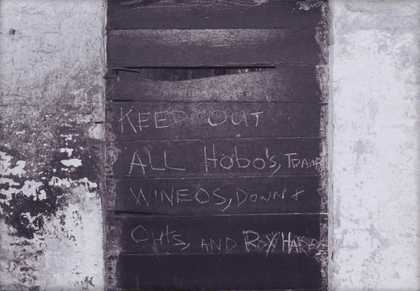 KEEP OUT
ALL HOBO'S, TRAMP
WINEOS, DOWN +
OUTS, AND